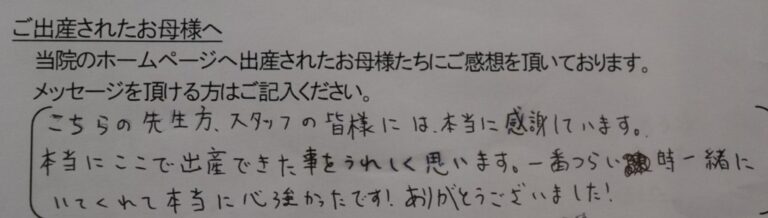 ご出産されたお母様へ
当院のホームページへ出産されたお母様たちにご感想を頂いております。
メッセージを頂ける方はご記入ください。
こちらの先生方、スタッフの皆様には、本当に感謝しています。
本当にここで出産できた事をうれしく思います。一番つらい時一緒に
いてくれて本当に心強かったです!ありがとうございました!